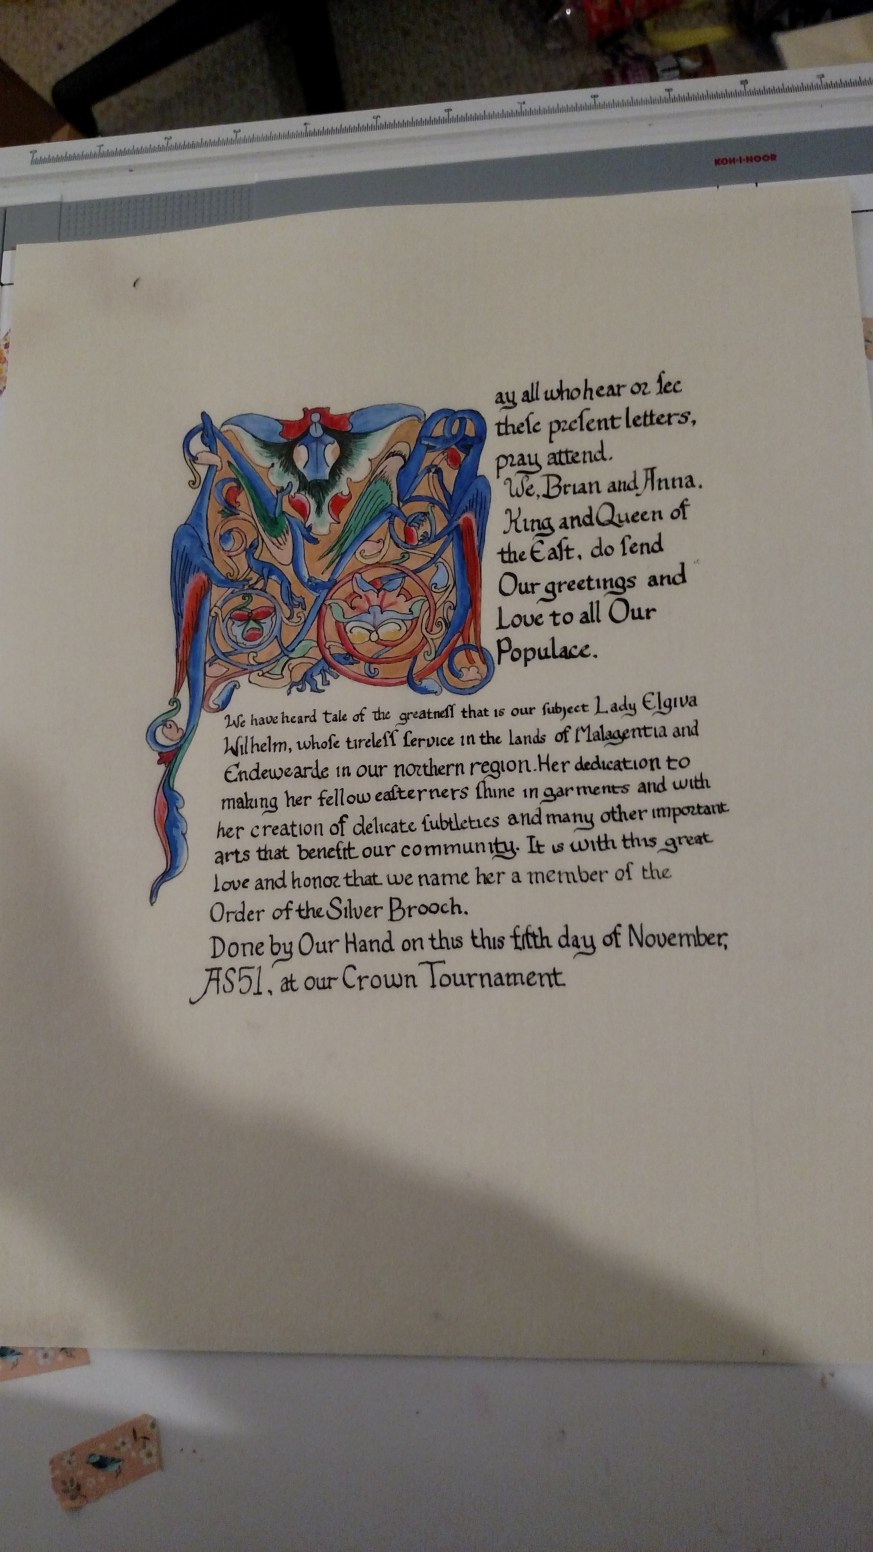 KOH-I-NOOR
May all who hear or ſee
theſe preſent letters,
pray attend.
We, Brian and Anna.
King and Queen of
the Eaſt, do ſend
Our greetings and
Love to all Our
Populace.
We have heard tale of the greatneſſ that is our ſubject Lady Elgiva
Wilhelm, whoſe tireleſſ ſervice in the lands of Malagentia and
Endewearde in our northern region. Her dedication to
making her fellow eaſterners ſhine in garments and with
her creation of delicate ſubtleties and many other important
arts that benefit our community. It is with this great
love and honor that we name her a member of the
Order of the Silver Brooch.
Done by Our Hand on this this fifth day of November,
AS51, at our Crown Tournament